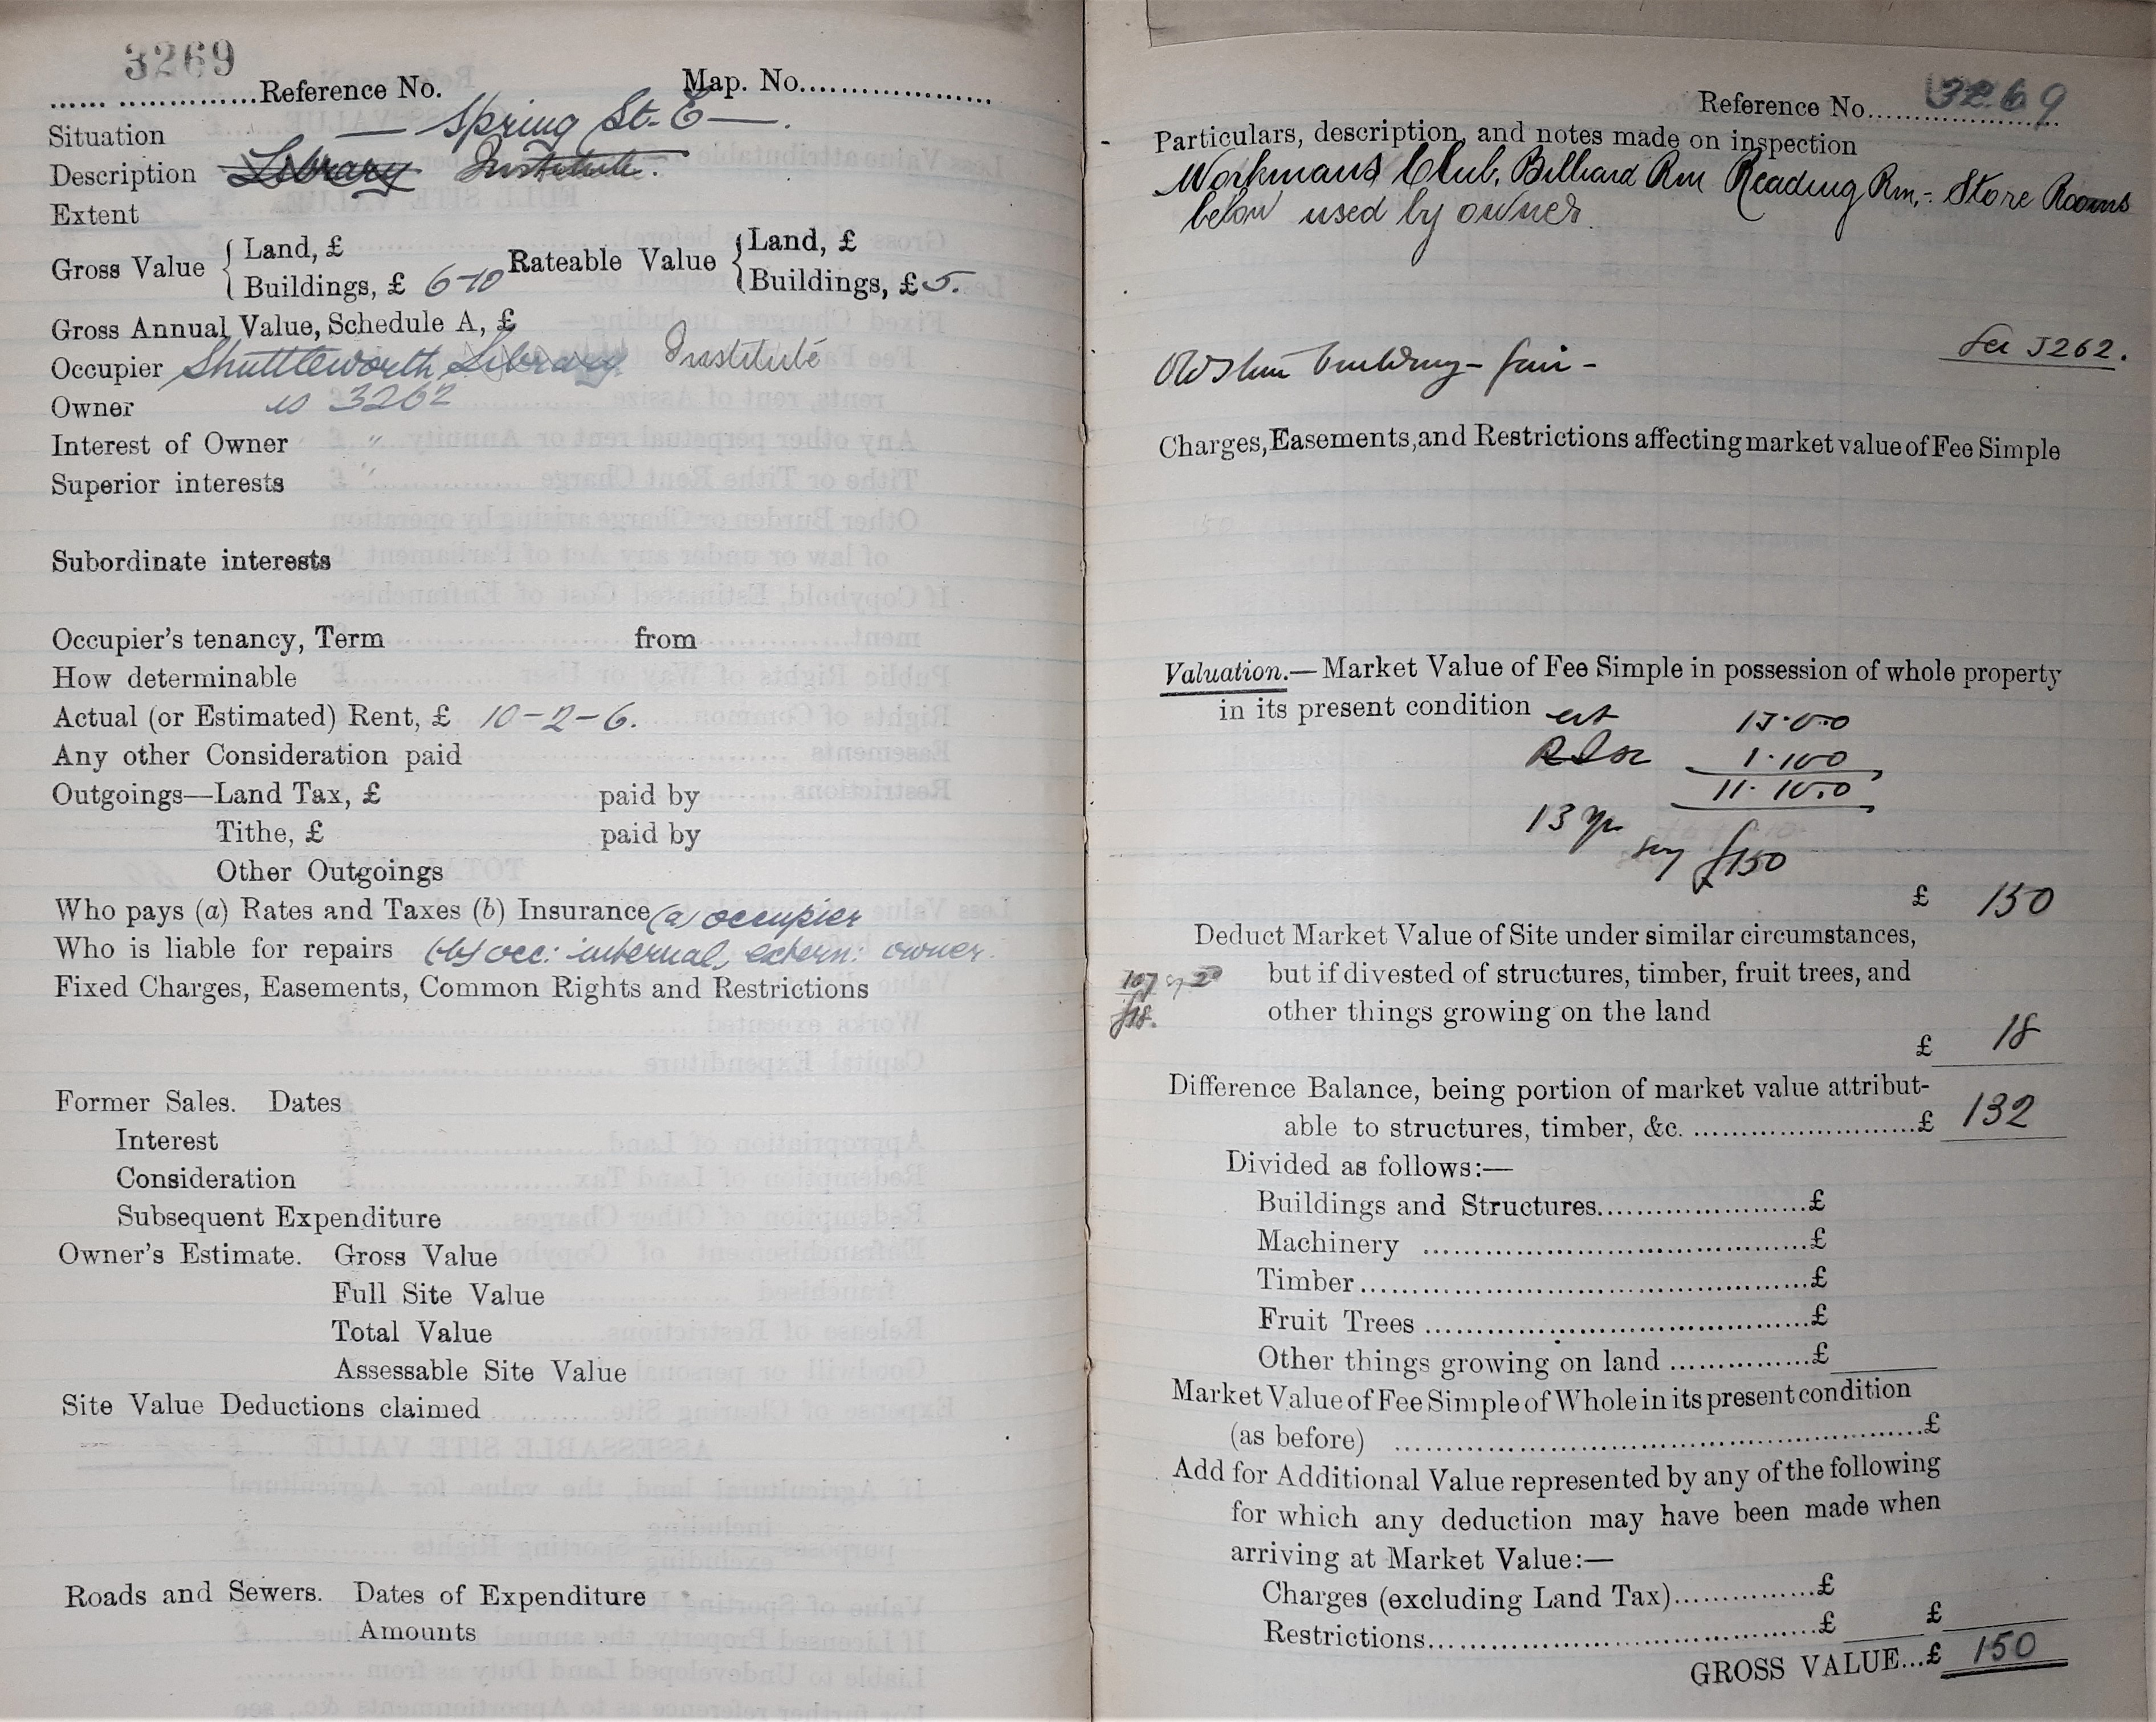 3269
...... ...............Reference No. Map. No.....................
Situation — Spring St. E —.
Description Library Institute.
Extent
Gross Value { Land, £ Rateable Value { Land, £
Buildings, £ 6-10 Buildings, £ 5.
Gross Annual Value, Schedule A, £
Occupier Shuttleworth Library Institute
Owner as 3262
Interest of Owner "
Superior interests
Subordinate interests
Occupier's tenancy, Term from
How determinable
Actual (or Estimated) Rent, £ 10-2-6.
Any other Consideration paid
Outgoings—Land Tax, £ paid by
Tithe, £ paid by
Other Outgoings
Who pays (a) Rates and Taxes (b) Insurance (a) occupier
Who is liable for repairs (b) occ: internal, extern: owner.
Fixed Charges, Easements, Common Rights and Restrictions
Former Sales. Dates
Interest
Consideration
Subsequent Expenditure
Owner's Estimate. Gross Value
Full Site Value
Total Value
Assessable Site Value
Site Value Deductions claimed
Roads and Sewers. Dates of Expenditure
Amounts
Reference No. 3269
Particulars, description, and notes made on inspection
Workmans Club, Billiard Rm Reading Rm,- Store Rooms
below used by owner.
3262.
Old building - fair -
Charges, Easements, and Restrictions affecting market value of Fee Simple
Valuation.—Market Value of Fee Simple in possession of whole property
in its present condition est
11.10.0
13 yp
say £150
£ 150
Deduct Market Value of Site under similar circumstances,
but if divested of structures, timber, fruit trees, and
107 @
£18.
other things growing on the land
£ 18
Difference Balance, being portion of market value attribut-
able to structures, timber, &c. ...........................£ 132
Divided as follows:—
Buildings and Structures.......................£
Machinery ..........................................£
Timber.................................................£
Fruit Trees ..........................................£
Other things growing on land ...............£
Market Value of Fee Simple of Whole in its present condition
(as before) ..........................................................£
Add for Additional Value represented by any of the following
for which any deduction may have been made when
arriving at Market Value:—
Charges (excluding Land Tax)...............£
Restrictions..........................................£ £
GROSS VALUE...£ 150